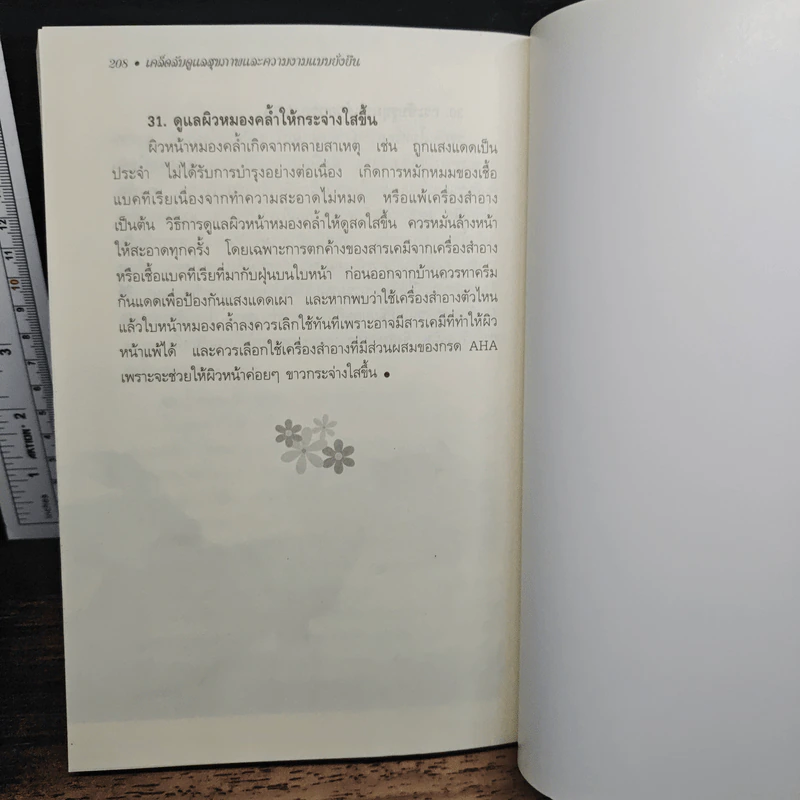 208 • เคล็ดลับดูแลสุขภาพและความงามแบบยั่งยืน
31. ดูแลผิวหมองคล้ำให้กระจ่างใสขึ้น
ผิวหน้าหมองคล้ำเกิดจากหลายสาเหตุ เช่น ถูกแสงแดดเป็น
ประจำ ไม่ได้รับการบำรุงอย่างต่อเนื่อง เกิดการหมักหมมของเชื้อ
แบคทีเรียเนื่องจากทำความสะอาดไม่หมด หรือแพ้เครื่องสำอาง
เป็นต้น วิธีการดูแลผิวหน้าหมองคล้ำให้ดูสดใสขึ้น ควรหมั่นล้างหน้า
ให้สะอาดทุกครั้ง โดยเฉพาะการตกค้างของสารเคมีจากเครื่องสำอาง
หรือเชื้อแบคทีเรียที่มากับฝุ่นบนใบหน้า ก่อนออกจากบ้านควรทาครีม
กันแดดเพื่อป้องกันแสงแดดเผา และหากพบว่าใช้เครื่องสำอางตัวไหน
แล้วใบหน้าหมองคล้ำลงควรเลิกใช้ทันทีเพราะอาจมีสารเคมีที่ทำให้ผิว
หน้าแพ้ได้ และควรเลือกใช้เครื่องสำอางที่มีส่วนผสมของกรด AHA
เพราะจะช่วยให้ผิวหน้าค่อยๆ ขาวกระจ่างใสขึ้น •
10
3
2
1